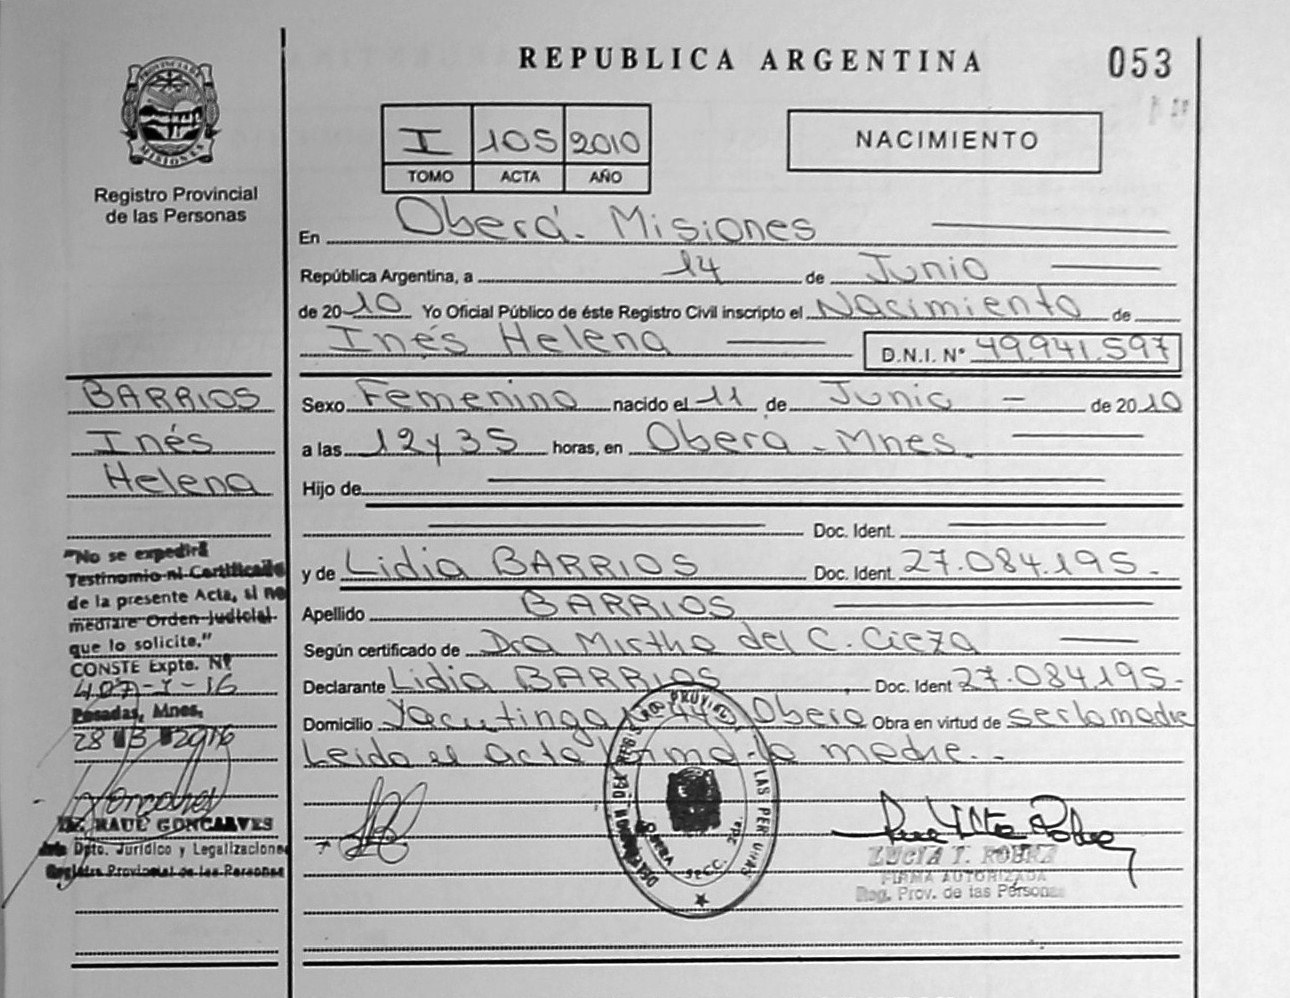 REPUBLICA ARGENTINA
053
PROVINCIA DE
MISIONES
Registro Provincial
de las Personas
I 105 2010
TOMO ACTA AÑO
NACIMIENTO
En Oberá. Misiones
República Argentina, a 14 de Junio
de 2010 Yo Oficial Público de éste Registro Civil inscripto el Nacimiento de
Inés Helena D.N.I. N° 49.941.597
BARRIOS
Inés
Helena
Sexo Femenino nacido el 11 de Junio de 2010
a las 12 y 35 horas, en Oberá - Mnes.
Hijo de
Doc. Ident.
y de Lidia BARRIOS Doc. Ident. 27.084.195.
Apellido BARRIOS
Según certificado de Dra Mirtha del C. Cieza
Declarante Lidia BARRIOS, Doc. Ident 27.084.195-
Domicilio Yacutinga N° 440 Oberá Obra en virtud de ser la madre
Leida el acta firma la madre.-
"No se expedirá
Testimonio ni Certificado
de la presente Acta, si no
mediare Orden Judicial
que lo solicite."
CONSTE Expte. N°
407-Y-16
Posadas, Mnes,
28 3 2016
RAUL GONCARVES
Dpto. Jurídico y Legalizaciones
Registro Provincial de las Personas
LAS PER
OBERA
SECC. 2da.
LUCIA T. ROBRA
FIRMA AUTORIZADA
Reg. Prov. de las Personas